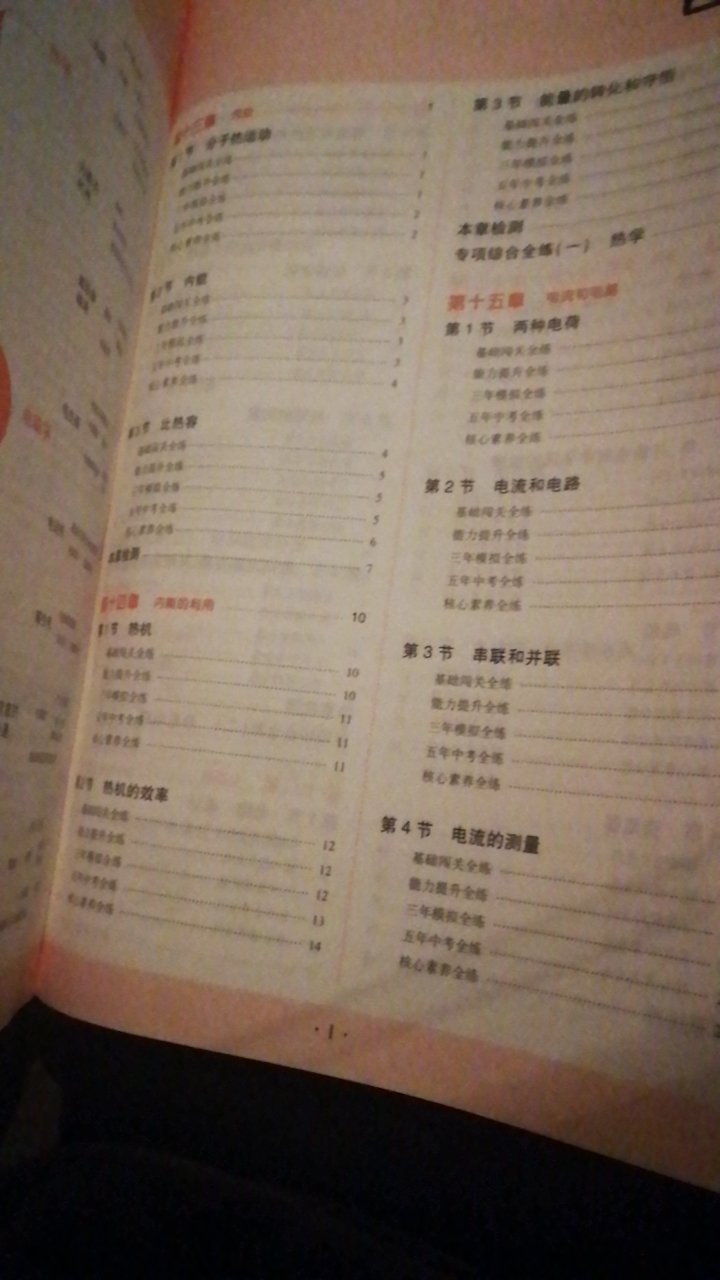 第十三章 内能 1
第1节 分子热运动
基础闯关全练 1
能力提升全练 1
三年模拟全练 1
五年中考全练 2
核心素养全练 2
第2节 内能
基础闯关全练 3
能力提升全练 3
三年模拟全练 3
五年中考全练 3
核心素养全练 4
第3节 比热容
基础闯关全练 4
能力提升全练 5
三年模拟全练 5
五年中考全练 5
核心素养全练 6
本章检测 7
第十四章 内能的利用 10
第1节 热机
基础闯关全练 10
能力提升全练 10
三年模拟全练 11
五年中考全练 11
核心素养全练 11
第2节 热机的效率
基础闯关全练 12
能力提升全练 12
三年模拟全练 12
五年中考全练 13
核心素养全练 14
第3节 能量的转化和守恒
基础闯关全练
能力提升全练
三年模拟全练
五年中考全练
核心素养全练
本章检测
专项综合全练(一) 热学
第十五章 电流和电路
第1节 两种电荷
基础闯关全练
能力提升全练
三年模拟全练
五年中考全练
核心素养全练
第2节 电流和电路
基础闯关全练
能力提升全练
三年模拟全练
五年中考全练
核心素养全练
第3节 串联和并联
基础闯关全练
能力提升全练
三年模拟全练
五年中考全练
核心素养全练
第4节 电流的测量
基础闯关全练
能力提升全练
三年模拟全练
五年中考全练
核心素养全练
·I·